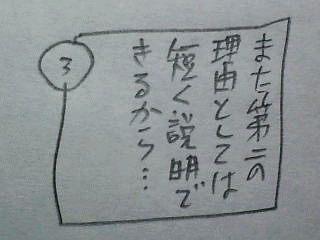 3
また第二の
理由としては
短く説明で
きるから…